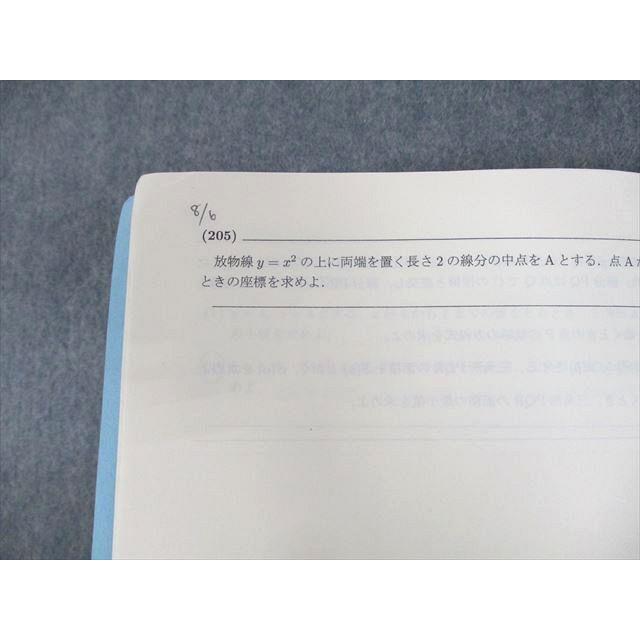 8/6
(205)
放物線 y = x² の上に両端を置く長さ 2 の線分の中点を A とする. 点 A が
ときの座標を求めよ.